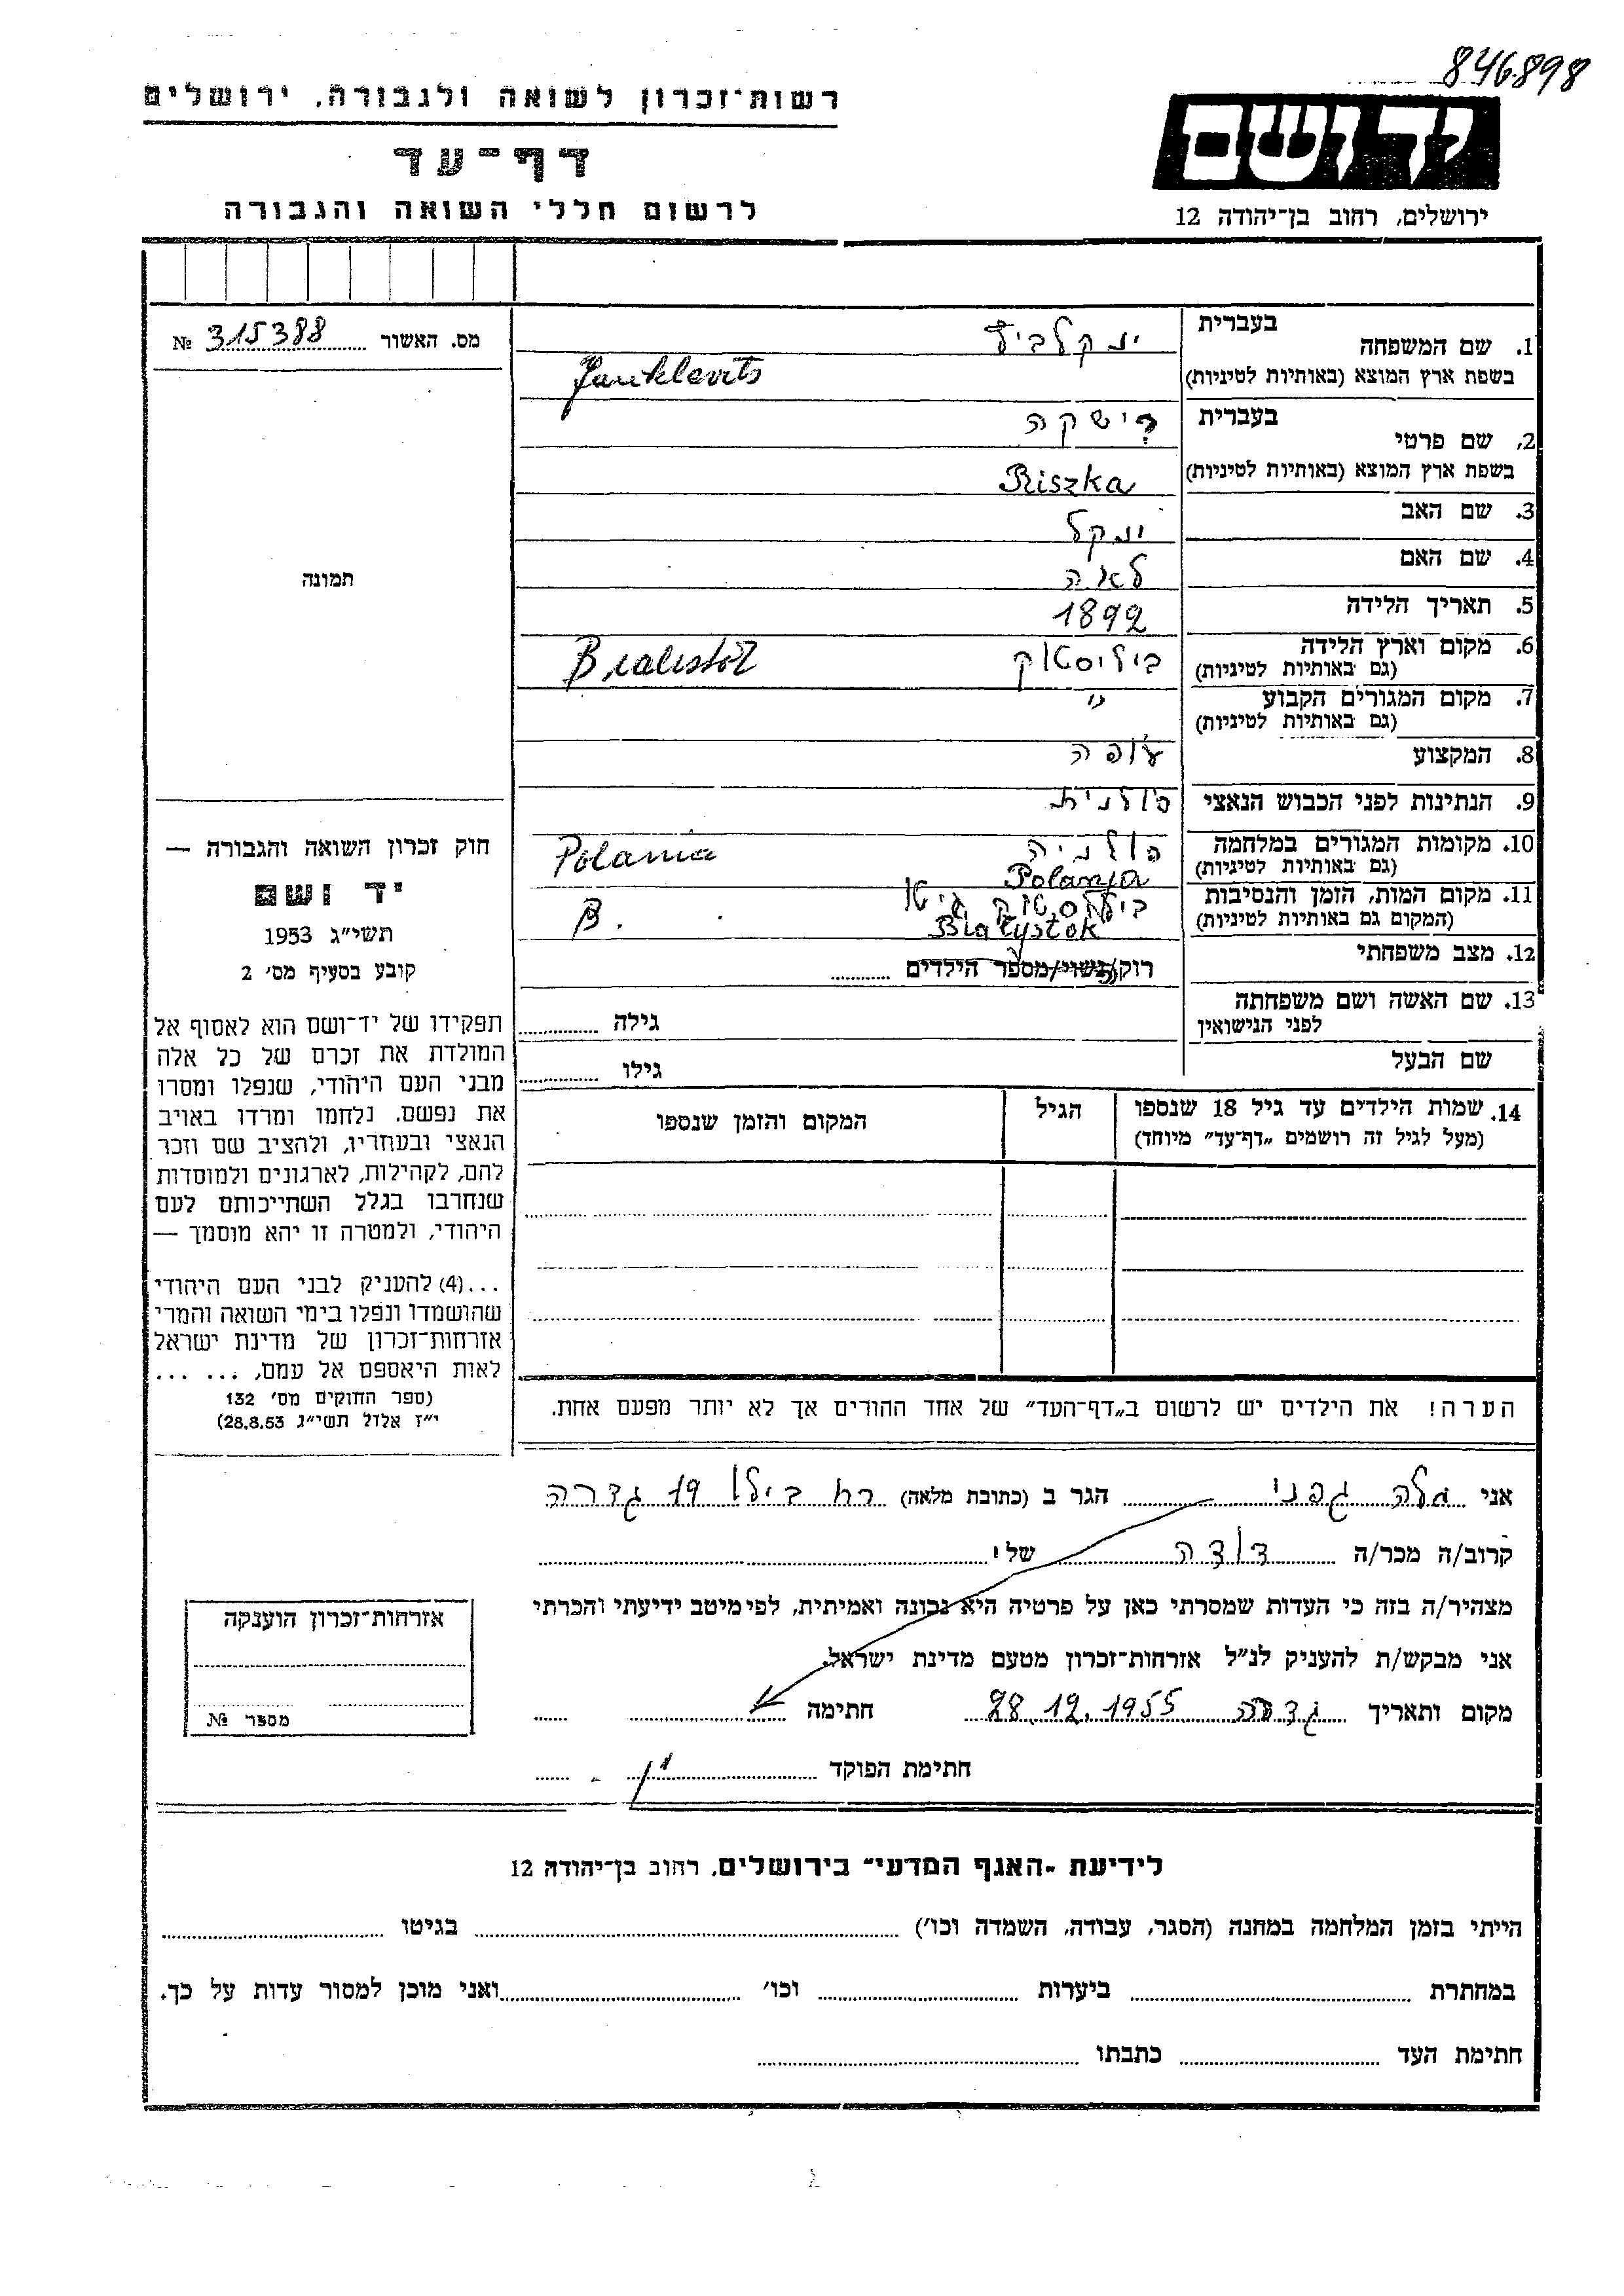 846898
רשות־זכרון לשואה ולגבורה, ירושלים
דף־עד
לרשום חללי השואה והגבורה
יד ושם
ירושלים, רחוב בן־יהודה 12
מס. האשור 315388 №
תמונה
חוק זכרון השואה והגבורה —
יד ושם
תשי״ג 1953
קובע בסעיף מס׳ 2
תפקידו של יד־ושם הוא לאסוף אל
המולדת את זכרם של כל אלה
מבני העם היהודי, שנפלו ומסרו
את נפשם. נלחמו ומרדו באויב
הנאצי ובעוזריו, ולהציב שם וזכר
להם, לקהילות, לארגונים ולמוסדות
שנחרבו בגלל השתייכותם לעם
היהודי, ולמטרה זו יהא מוסמך —
...(4) להעניק לבני העם היהודי
שהושמדו ונפלו בימי השואה והמרי
אזרחות־זכרון של מדינת ישראל
לאות היאספם אל עמם, ... ...
(ספר החוקים מס׳ 132
י״ז אלול תשי״ג 28.8.53)
1. שם המשפחה בעברית
ינקלביץ
בשפת ארץ המוצא (באותיות לטיניות) Janklevits
2. שם פרטי בעברית
רישקה
בשפת ארץ המוצא (באותיות לטיניות) Riszka
3. שם האב ינקל
4. שם האם לאה
5. תאריך הלידה 1892
6. מקום וארץ הלידה
(גם באותיות לטיניות) ביליסטוק
7. מקום המגורים הקבוע ״
(גם באותיות לטיניות)
8. המקצוע עופה
9. הנתינות לפני הכבוש הנאצי פולנית
10. מקומות המגורים במלחמה פולניה Polania
(גם באותיות לטיניות) Polanja
11. מקום המות, הזמן והנסיבות גיטו B.
(המקום גם באותיות לטיניות) Bialystok
12. מצב משפחתי רוק/נשוי/מספר הילדים
13. שם האשה ושם משפחתה
לפני הנישואין גילה
שם הבעל גילו
14. שמות הילדים עד גיל 18 שנספו הגיל המקום והזמן שנספו
(מעל לגיל זה רושמים „דף־עד״ מיוחד)
הערה! את הילדים יש לרשום ב„דף־העד״ של אחד ההורים אך לא יותר מפעם אחת.
אני גפני הגר ב (כתובת מלאה) רח בילו 19 גדרה
קרוב/ה מכר/ה דודה של י
מצהיר/ה בזה כי העדות שמסרתי כאן על פרטיה היא נכונה ואמיתית, לפי מיטב ידיעתי והכרתי
אני מבקש/ת להעניק לנ״ל אזרחות־זכרון מטעם מדינת ישראל.
מקום ותאריך גדרה 28.12.1955 חתימה
חתימת הפוקד
אזרחות־זכרון הוענקה
מספר №
לידיעת „האגף המדעי״ בירושלים, רחוב בן־יהודה 12
הייתי בזמן המלחמה במחנה (הסגר, עבודה, השמדה וכו׳) בגיטו
במחתרת ביערות וכו׳ ואני מוכן למסור עדות על כך.
חתימת העד כתבתו